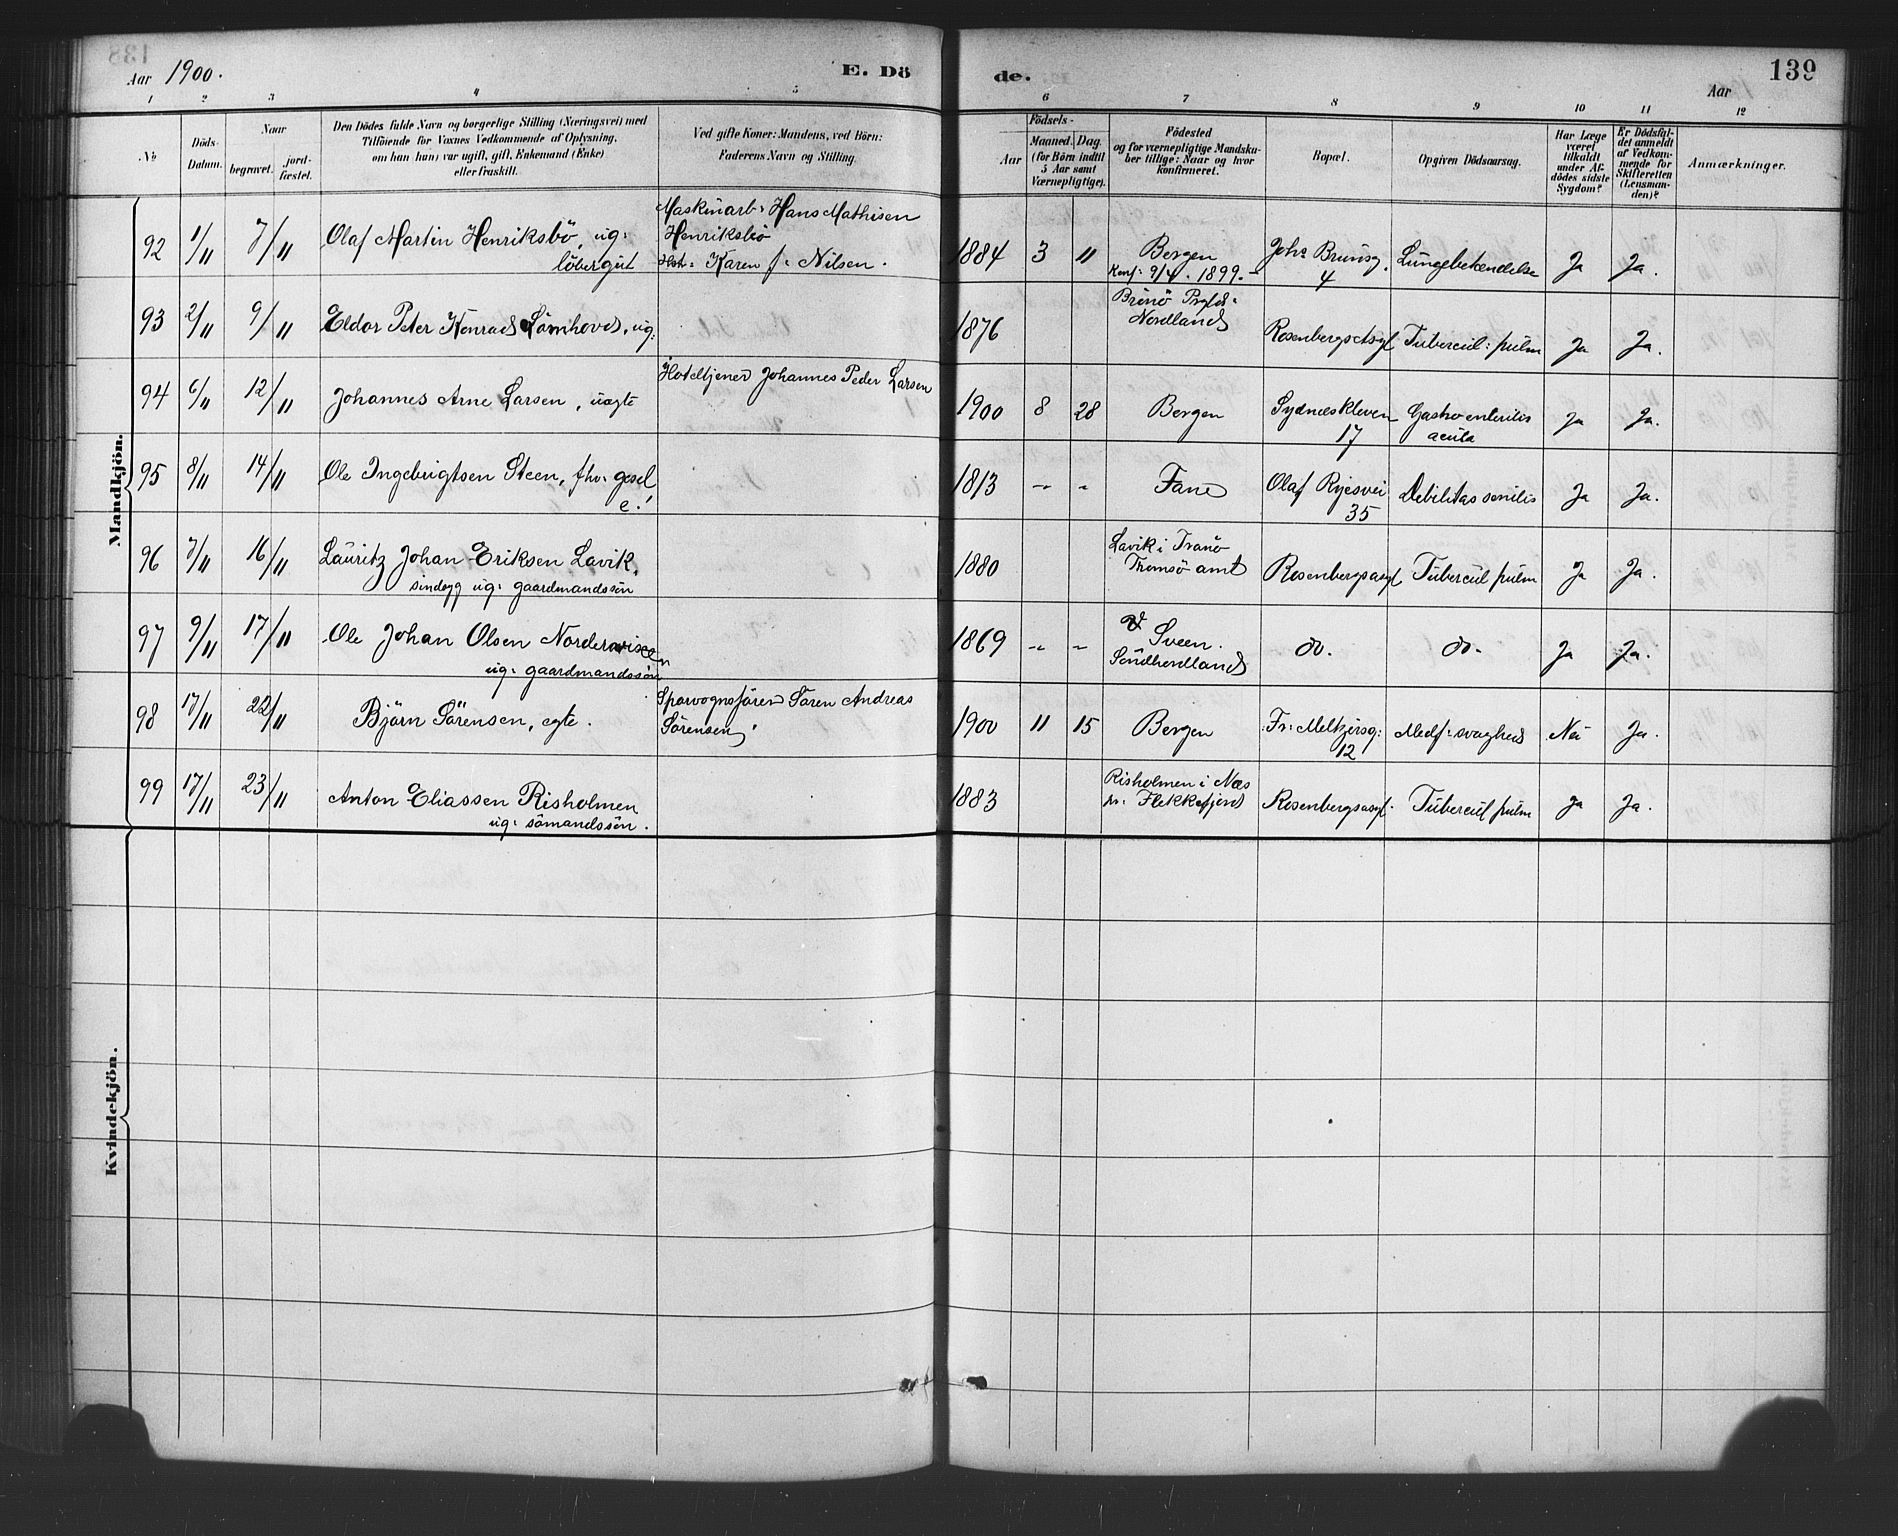 Aar 1900.
E. Dö
de.
Aar
139
1 2 3 4 5 6 7 8 9 10 11 12
No
Döds-
Datum.
Naar
begravet.
jord-
fæstet.
Den Dödes fulde Navn og borgerlige Stilling (Næringsvei) med
Tilföiende for Voxnes Vedkommende af Oplysning,
om han (hun) var ugift, gift, Enkemand (Enke)
eller fraskilt.
Ved gifte Koner: Mandens, ved Börn:
Faderens Navn og Stilling.
Födsels-
Aar
Maaned. Dag.
(for Börn indtil
5 Aar samt
Værnepligtige).
Födested
og for værnepligtige Mandsku-
ber tillige: Naar og hvor
konfirmeret.
Bopæl.
Opgiven Dödsaarsag.
Har Læge
været
tilkaldt
under Af-
dödes sidste
Sygdom?
Er Dödsfal-
det anmeldt
af Vedkom-
mende for
Skifteretten
(Lensman-
den)?
Anmærkninger.
Mandkjön.
92 1/11 7/11 Olaf Martin Henriksbö, ug:
löbergut
Maskinarb: Hans Mathisen
Henriksbö
Hst: Karen f: Nilsen.
1884 3 11 Bergen
Konf: 9/4. 1899.-
Johs Brunsg.
4
Lungebetændelse Ja Ja.
93 2/11 9/11 Eldor Peter Konrad Sömhoved, ug:
1876
Brönö Prgld:
Nordland
Rosenbergs Asyl Tubercul: pulm Ja Ja.
94 6/11 12/11 Johannes Arne Larsen, uægte
Hoteltjener Johannes Peder Larsen
1900 8 28 Bergen
Sydneskleven
17
Gastro enteritis
acuta
Ja Ja.
95 8/11 14/11 Ole Ingebrigtsen Steen, fhv: gesel
e!
1813 -- - Fane
Olaf Ryesvei
35
Debilitas senilis Ja Ja.
96 7/11 16/11 Lauritz Johan Eriksen Lavik,
sindsyg ug: gaardmandssön
1880
Lavik i Tranö
Tromsö amt
Rosenbergsasyl Tubercul pulm Ja Ja.
97 9/11 17/11 Ole Johan Olsen
ug: gaardmandssön
1869 -- -
Sveen.
Söndhordland
do. do. Ja Ja.
98 17/11 22/11 Björn Sörensen, egte.
Sporvognsförer Sören Andreas
Sörensen
1900 11 15 Bergen
Fr: Meltzersg:
12
Medf: svaghed Nei Ja.
99 17/11 23/11 Anton Eliassen Risholmen
ug: sömandssön.
1883
Risholmen i Næs
pr: Flekkefjord
Rosenbergsasyl. Tubercul pulm Ja Ja.
Kvindekjön.